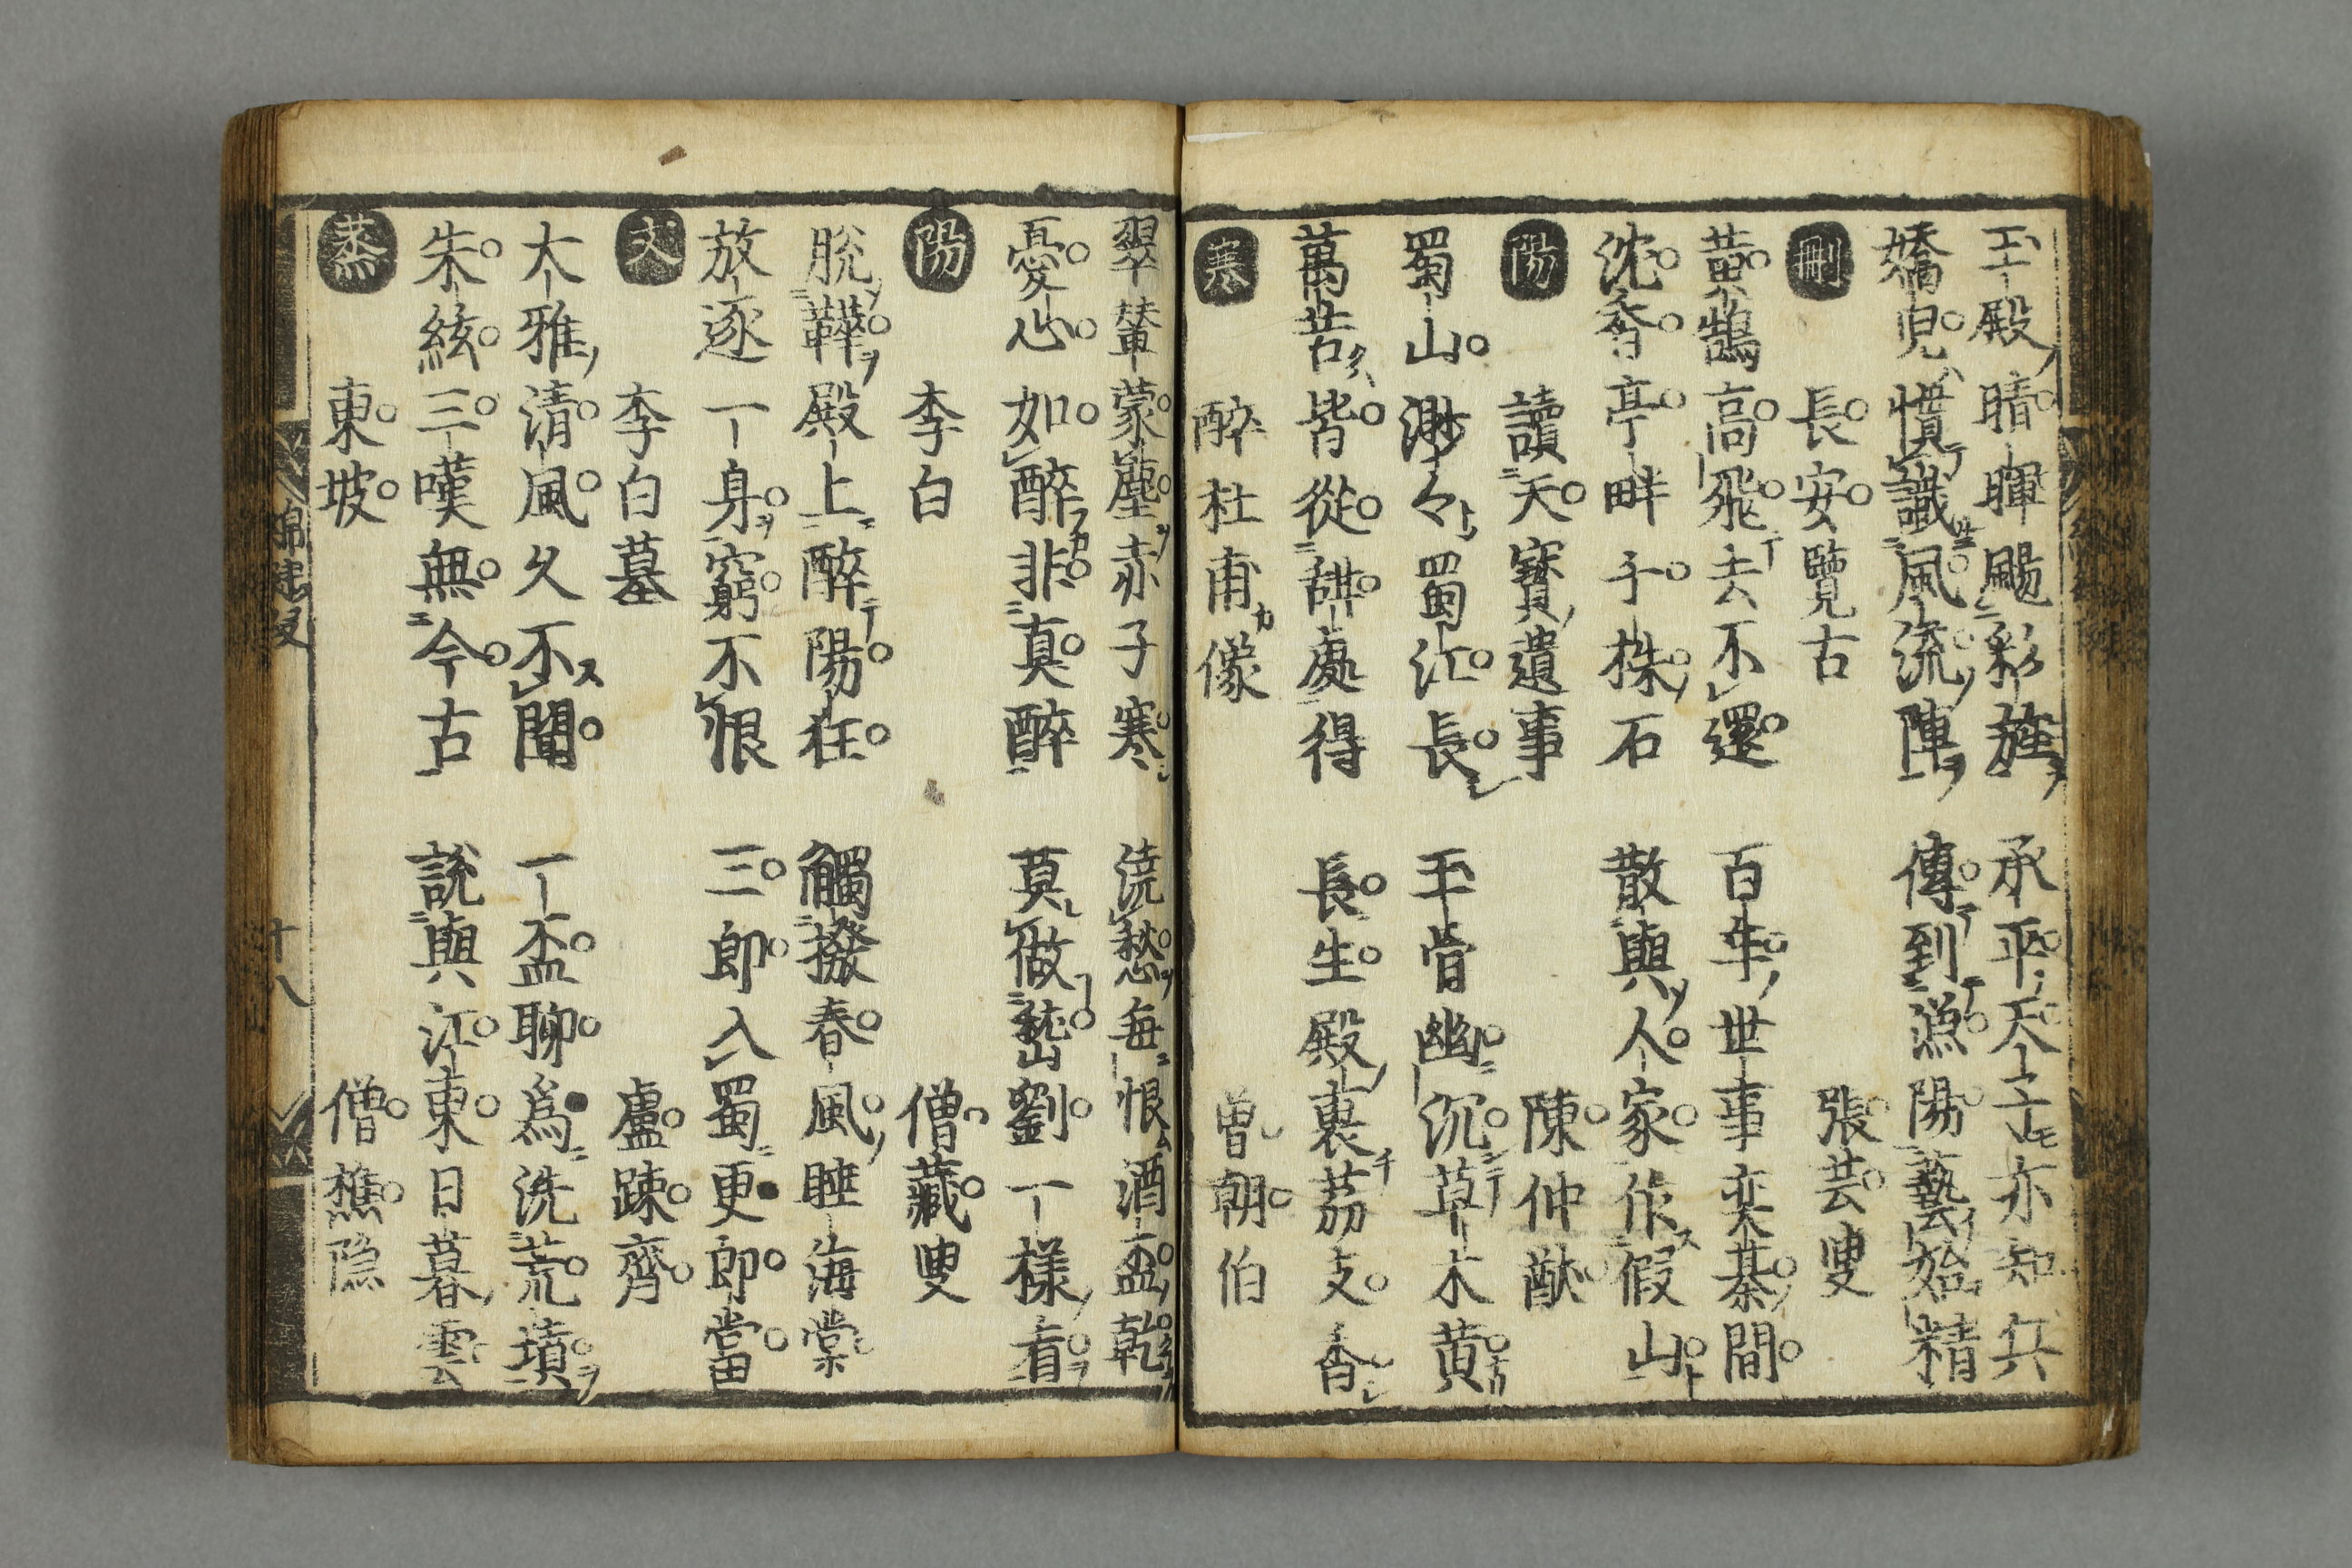 玉殿晴暉颺彩旌　承平天子亦知兵
嬌兒慣識風流陣　傳到漁陽藝始精
刪　長安覽古　張芸叟
黄鵠高飛去不還　百年世事奕棊間
沈香亭畔千株石　散與人家作假山
陽　讀天寶遺事　陳仲猷
蜀山渺々蜀江長　玉骨幽沉草木黄
萬苦皆從甜處得　長生殿裏茘支香
寒　醉杜甫像　曽朝伯
翠輦蒙塵赤子寒　澆愁毎恨酒盃乾
憂心如醉非真醉　莫做嵆劉一樣看
陽　李白　僧藏叟
脱鞾殿上醉陽狂　觸撥春風睡海棠
放逐一身窮不恨　三郎入蜀更郎當
文　李白墓　盧踈齊
大雅清風久不聞　一盃聊爲洗荒墳
朱絃三嘆無今古　説與江東日暮雲
蒸　東坡　僧樵隠
錦
十八